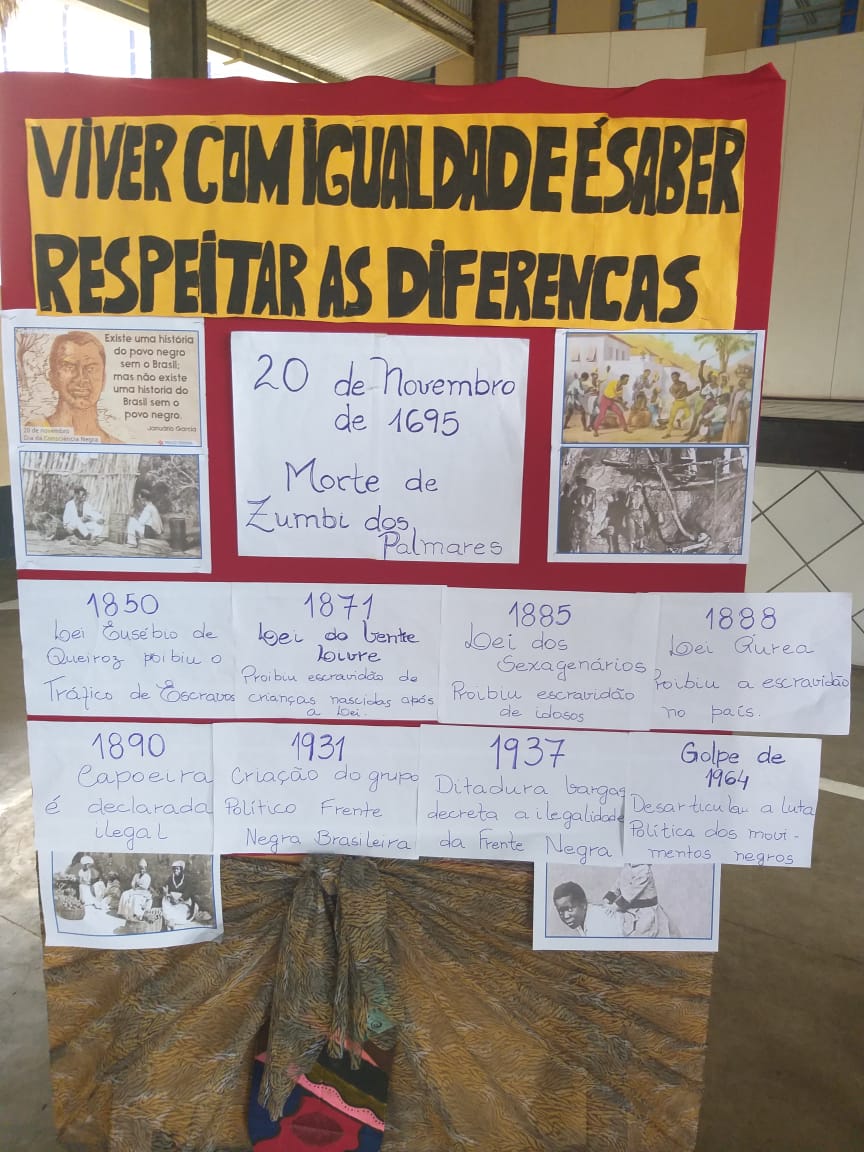 VIVER COM IGUALDADE É SABER
RESPEITAR AS DIFERENCAS
Existe uma história
do povo negro
sem o Brasil;
mas não existe
uma historia do
Brasil sem o
povo negro.
Januário Garcia
20 de novembro
Dia da Consciência Negra
20 de Novembro
de 1695
Morte de
Zumbi dos
Palmares
1850
Lei Eusébio de
Queiroz poibiu o
Tráfico de Escravos
1871
Lei do Ventre
Livre
Proibiu escravidão de
crianças nascidas após
a Lei.
1885
Lei dos
Sexagenários
Proibiu escravidão
de idosos
1888
Lei Áurea
Proibiu a escravidão
no país.
1890
Capoeira
é declarada
ilegal
1931
Criação do grupo
Político Frente
Negra Brasileira
1937
Ditadura Vargas
decreta a ilegalidade
da Frente Negra
Golpe de
1964
Desarticular a luta
Política dos movi-
mentos negros